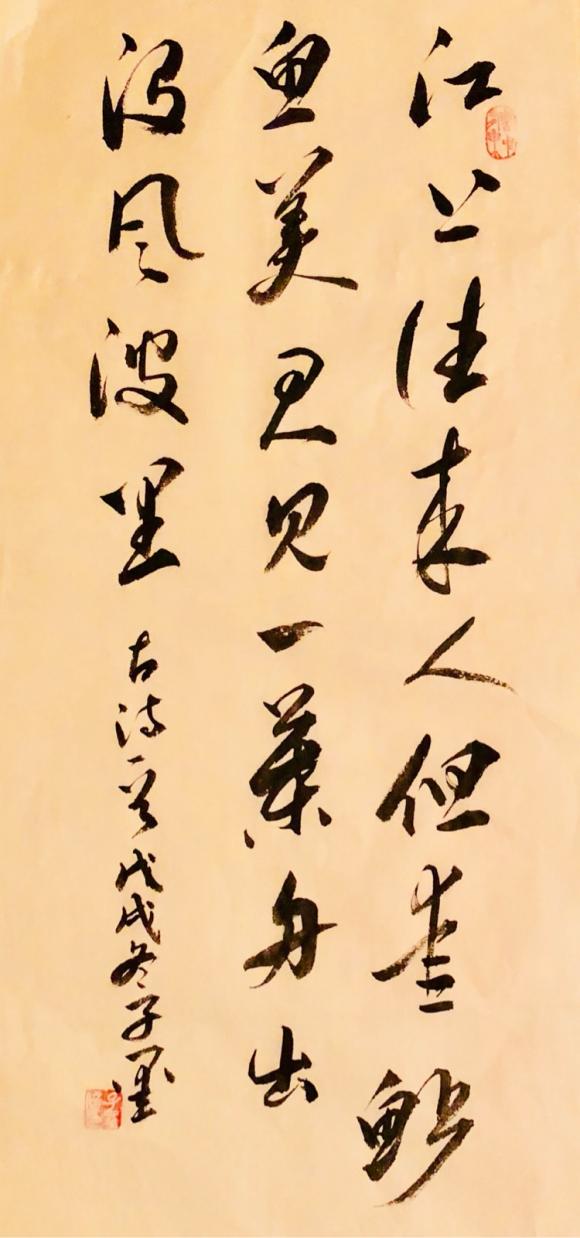 江上往来人但爱鲈
鱼美君见一葉舟出
没风波里
古诗一首戊戌冬子墨